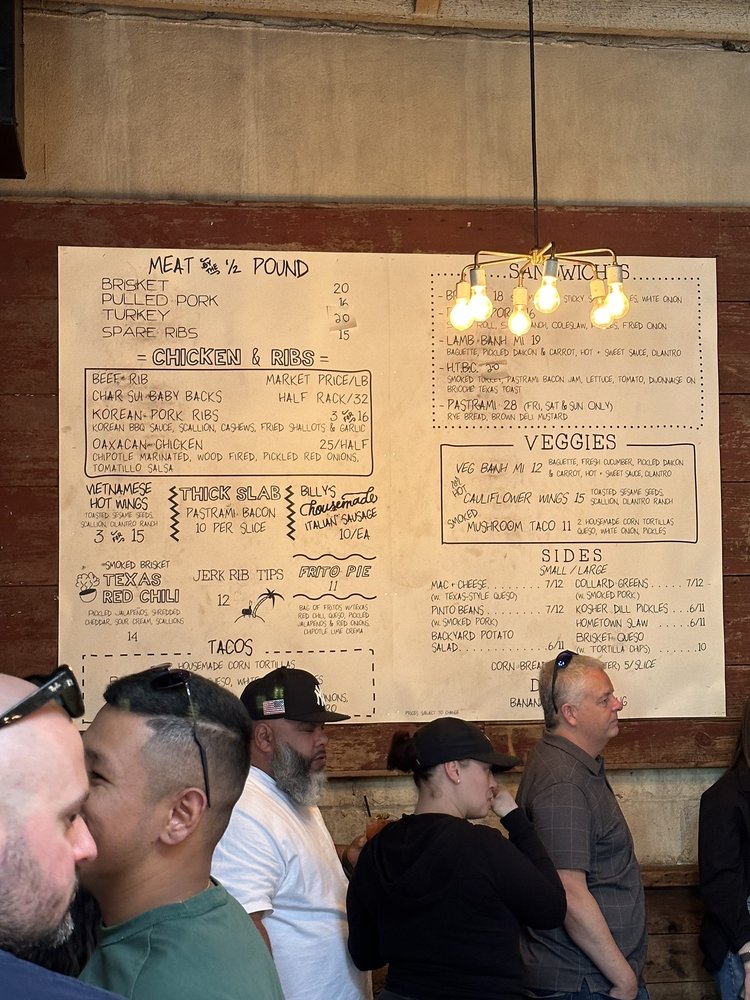 MEAT BY THE 1/2 POUND
BRISKET 20
PULLED PORK 16
TURKEY 20
SPARE RIBS 15
= CHICKEN & RIBS =
BEEF RIB MARKET PRICE/LB
CHAR SUI BABY BACKS HALF RACK/32
KOREAN PORK RIBS 3 FOR 16
KOREAN BBQ SAUCE, SCALLION, CASHEWS, FRIED SHALLOTS & GARLIC
OAXACAN CHICKEN 25/HALF
CHIPOTLE MARINATED, WOOD FIRED, PICKLED RED ONIONS,
TOMATILLO SALSA
VIETNAMESE
HOT WINGS
TOASTED SESAME SEEDS,
SCALLION, CILANTRO RANCH
3 FOR 15
THICK SLAB
PASTRAMI BACON
10 PER SLICE
BILLY'S
housemade
ITALIAN SAUSAGE
10/EA
SMOKED BRISKET
TEXAS
RED CHILI
PICKLED JALAPEÑOS, SHREDDED
CHEDDAR, SOUR CREAM, SCALLIONS
14
JERK RIB TIPS
12
FRITO PIE
11
BAG OF FRITOS W/TEXAS
RED CHILI, QUESO, PICKLED
JALAPEÑOS & RED ONIONS,
CHIPOTLE LIME CREMA
TACOS
HOUSEMADE CORN TORTILLAS
QUESO, WHITE
ONIONS,
SANDWICHES
18 STICKY WHITE ONION
ROLL, COLESLAW, FRIED ONION
- LAMB BANH MI 19
BAGUETTE, PICKLED DAIKON & CARROT, HOT + SWEET SAUCE, CILANTRO
- H.T.B.C. 20
SMOKED TURKEY, PASTRAMI BACON JAM, LETTUCE, TOMATO, DIJONNAISE ON
BRIOCHE TEXAS TOAST
- PASTRAMI 28 (FRI, SAT & SUN ONLY)
RYE BREAD, BROWN DELI MUSTARD
VEGGIES
VEG BANH MI 12 BAGUETTE, FRESH CUCUMBER, PICKLED DAIKON
& CARROT, HOT + SWEET SAUCE, CILANTRO
HOT
CAULIFLOWER WINGS 15 TOASTED SESAME SEEDS,
SCALLION, CILANTRO RANCH
SMOKED
MUSHROOM TACO 11 2 HOUSEMADE CORN TORTILLAS
QUESO, WHITE ONION, PICKLES
SIDES
SMALL / LARGE
MAC + CHEESE 7/12
(W. TEXAS-STYLE QUESO)
PINTO BEANS 7/12
(W. SMOKED PORK)
BACKYARD POTATO
SALAD 6/11
COLLARD GREENS 7/12
(W. SMOKED PORK)
KOSHER DILL PICKLES 6/11
HOMETOWN SLAW 6/11
BRISKET QUESO
(W. TORTILLA CHIPS) 10
CORN BREAD 5/SLICE
PRICES SUBJECT TO CHANGE
NY